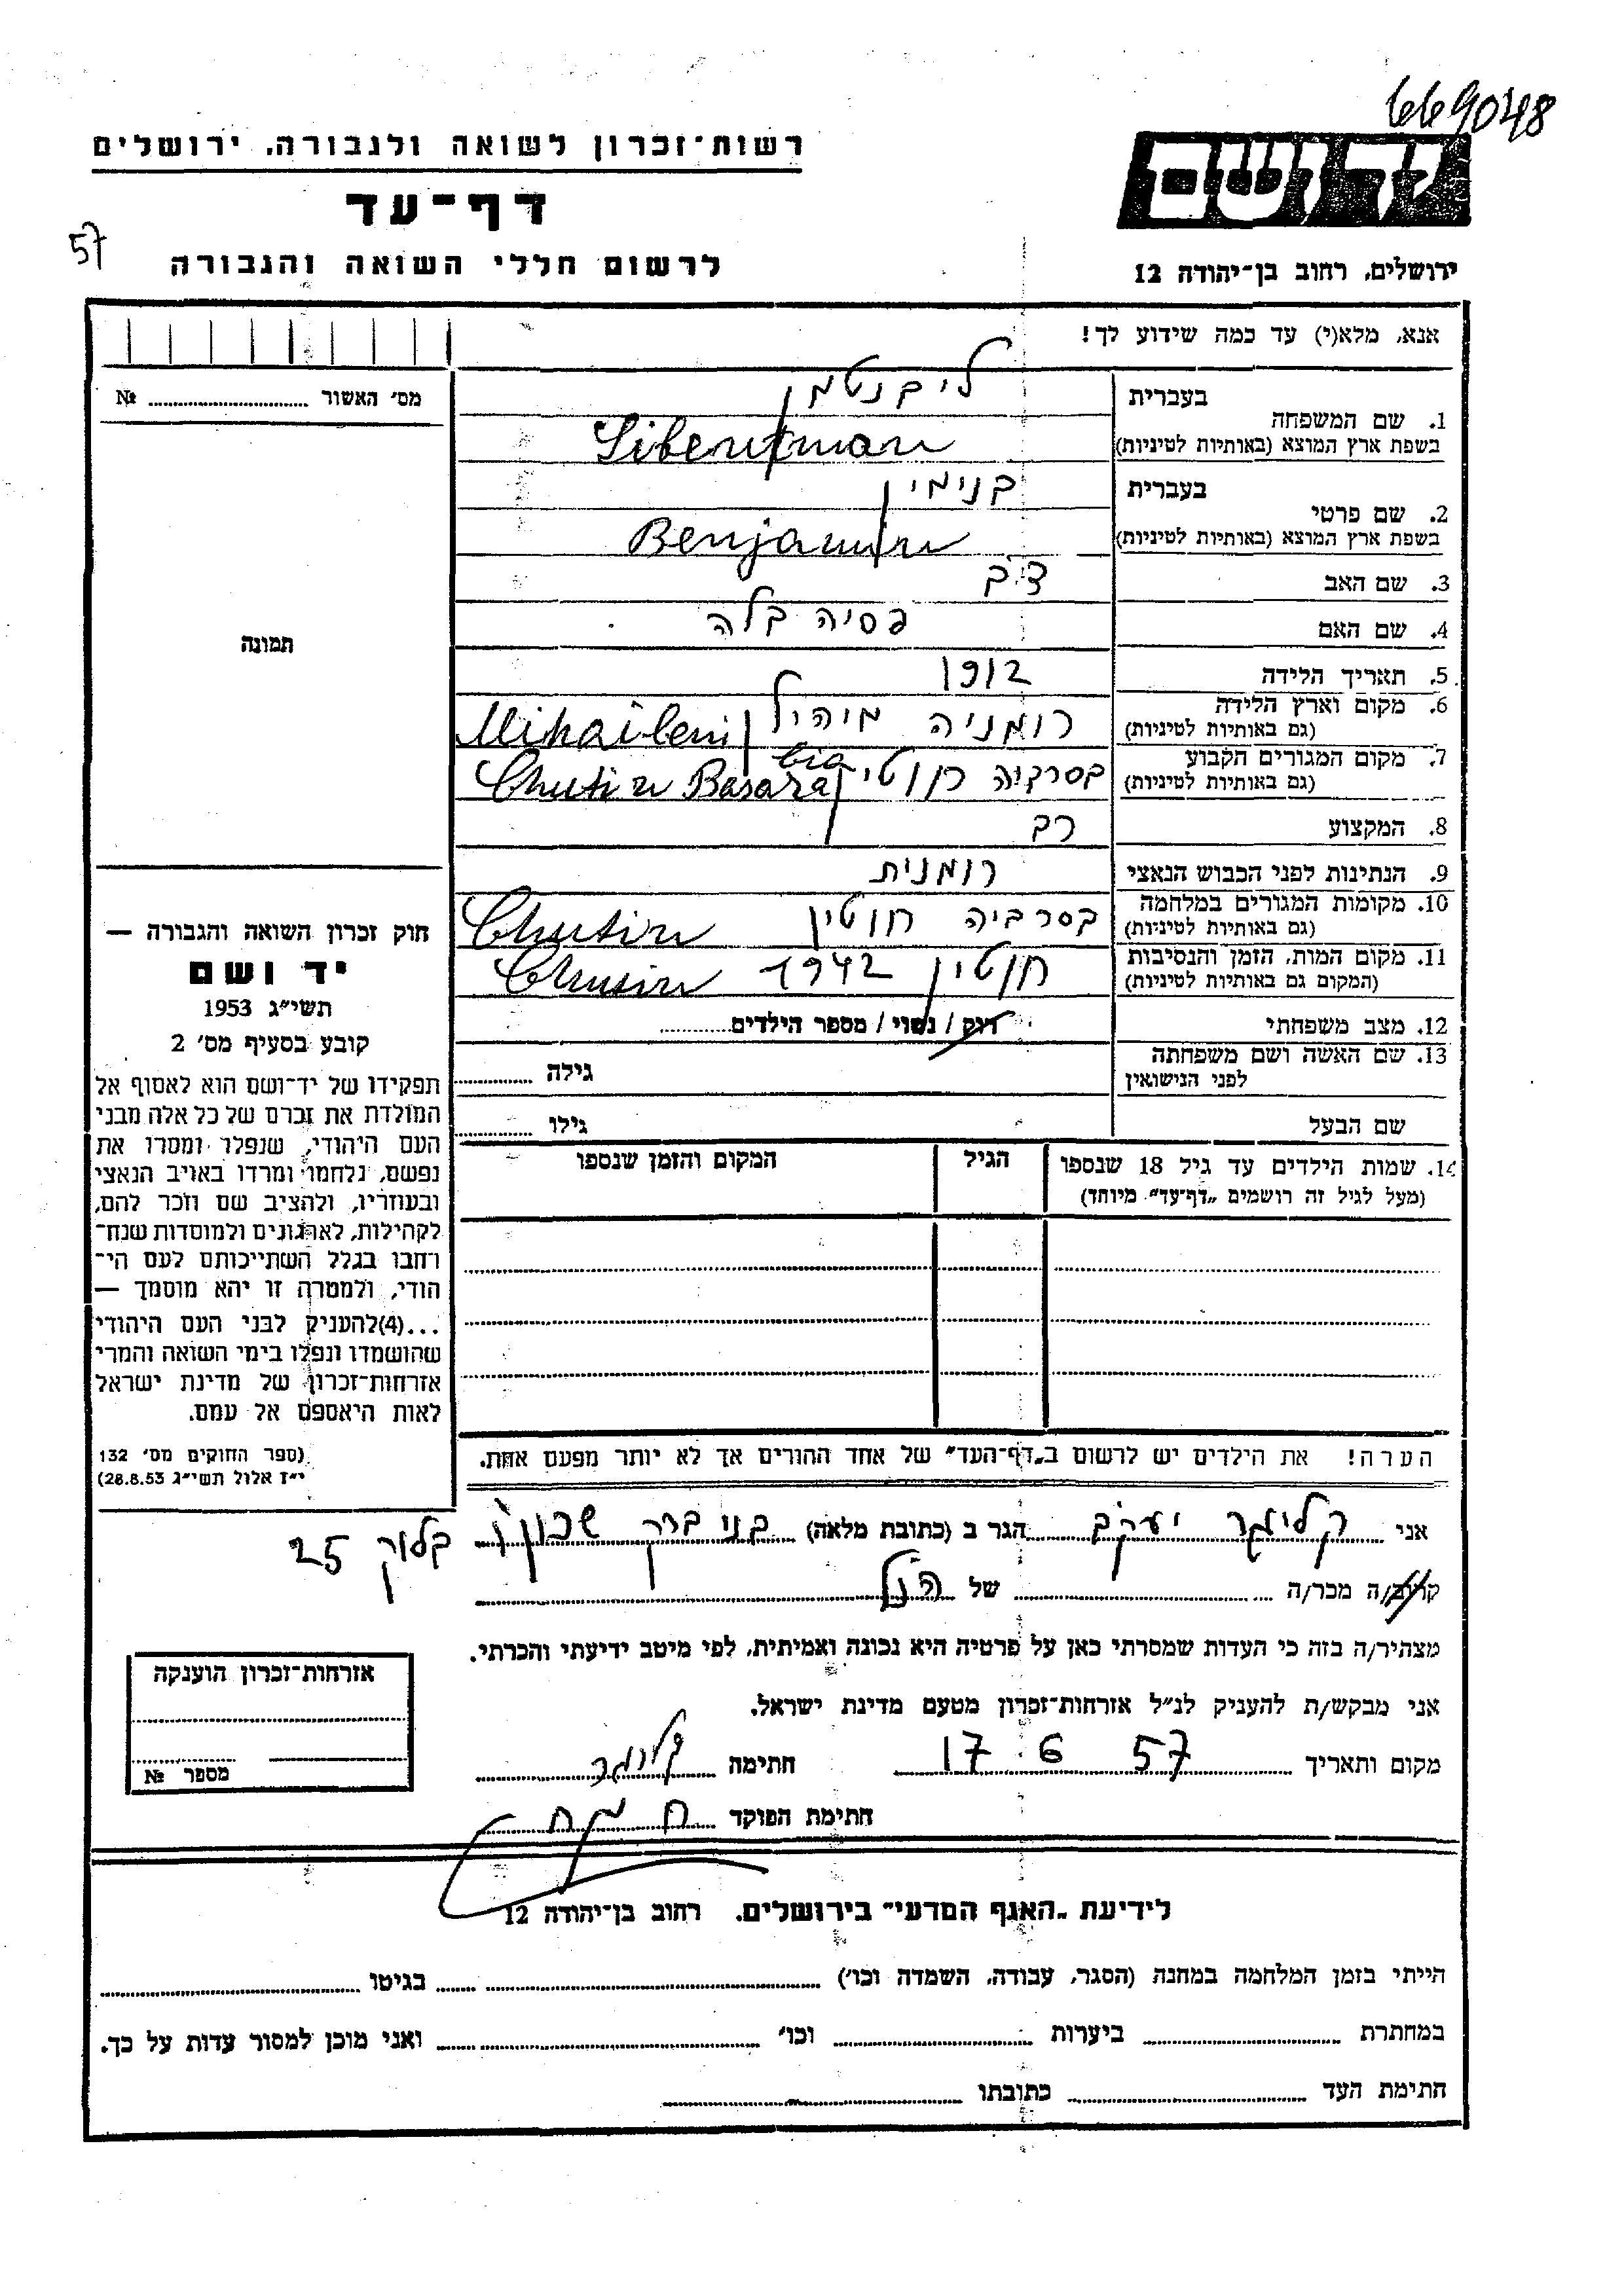 669048
יד ושם
רשות־זכרון לשואה ולגבורה, ירושלים
דף־עד
57
לרשום חללי השואה והגבורה
ירושלים, רחוב בן־יהודה 12
אנא, מלא(י) עד כמה שידוע לך!
מס׳ האשור № ........
תמונה
1. שם המשפחה
בעברית ליבנטמן
בשפת ארץ המוצא (באותיות לטיניות) Libentman
2. שם פרטי
בעברית בנימין
בשפת ארץ המוצא (באותיות לטיניות) Benjamin
3. שם האב
4. שם האם פסיה בלה
5. תאריך הלידה 1912
6. מקום וארץ הלידה רומניה
(גם באותיות לטיניות) Mihaileni
7. מקום המגורים הקבוע בסרביה חוטין
(גם באותיות לטיניות) Chutin Basarabia
8. המקצוע רב
9. הנתינות לפני הכבוש הנאצי רומנית
10. מקומות המגורים במלחמה בסרביה חוטין
(גם באותיות לטיניות) Chutin
11. מקום המות, הזמן והנסיבות חוטין 1942
(המקום גם באותיות לטיניות) Chusin
12. מצב משפחתי רוק / נשוי / מספר הילדים........
13. שם האשה ושם משפחתה
לפני הנישואין
גילה ........
שם הבעל
גילו ........
14. שמות הילדים עד גיל 18 שנספו
(מעל לגיל זה רושמים „דף־עד” מיוחד)
הגיל
המקום והזמן שנספו
הערה! את הילדים יש לרשום ב„דף־העד” של אחד ההורים אך לא יותר מפעם אחת.
חוק זכרון השואה והגבורה —
יד ושם
תשי״ג 1953
קובע בסעיף מס׳ 2
תפקידו של יד־ושם הוא לאסוף אל
המולדת את זכרם של כל אלה מבני
העם היהודי, שנפלו ומסרו את
נפשם, נלחמו ומרדו באויב הנאצי
ובעוזריו, ולהציב שם וזכר להם,
לקהילות, לארגונים ולמוסדות שנח־
רחבו בגלל השתייכותם לעם הי־
הודי, ולמטרה זו יהא מוסמך —
...(4)להעניק לבני העם היהודי
שהושמדו ונפלו בימי השואה והמרי
אזרחות־זכרון של מדינת ישראל
לאות היאספם אל עמם.
(ספר החוקים מס׳ 132
י״ז אלול תשי״ג 28.8.53)
אני קליגר יעקב הגר ב (כתובת מלאה) בני ברק שכון ו בלוק 25
קרוב/ה מכר/ה ........ של הנ״ל
מצהיר/ה בזה כי העדות שמסרתי כאן על פרטיה היא נכונה ואמיתית, לפי מיטב ידיעתי והכרתי.
אני מבקש/ת להעניק לנ״ל אזרחות־זכרון מטעם מדינת ישראל.
מקום ותאריך 17 6 57 חתימה קליגר
חתימת הפוקד
אזרחות־זכרון הוענקה
מספר №
לידיעת „האגף המדעי” בירושלים, רחוב בן־יהודה 12
הייתי בזמן המלחמה במחנה (הסגר, עבודה, השמדה וכו׳) ........ בגיטו ........
במחתרת ........ ביערות ........ וכו׳ ........ ואני מוכן למסור עדות על כך.
חתימת העד ........ כתובתו ........